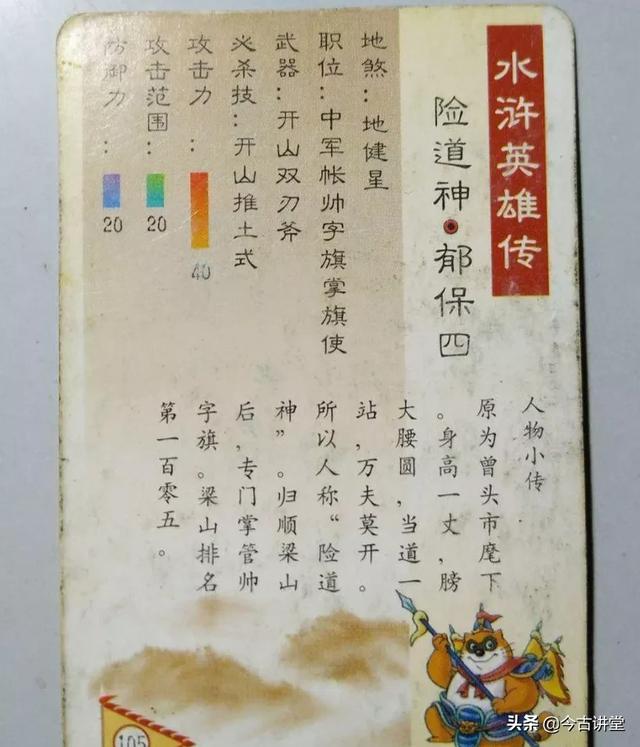 水浒英雄传
险道神·郁保四
地煞：地健星
职位：中军帐帅字旗掌旗使
武器：开山双刃斧
必杀技：开山推土式
攻击力：
40
攻击范围：
20
防御力：
20
人物小传
原为曾头市麾下
。身高一丈，膀
大腰圆，当道一
站，万夫莫开。
所以人称“险道
神”。归顺梁山
后，专门掌管帅
字旗。梁山排名
第一百零五。
105
头条 @今古讲堂